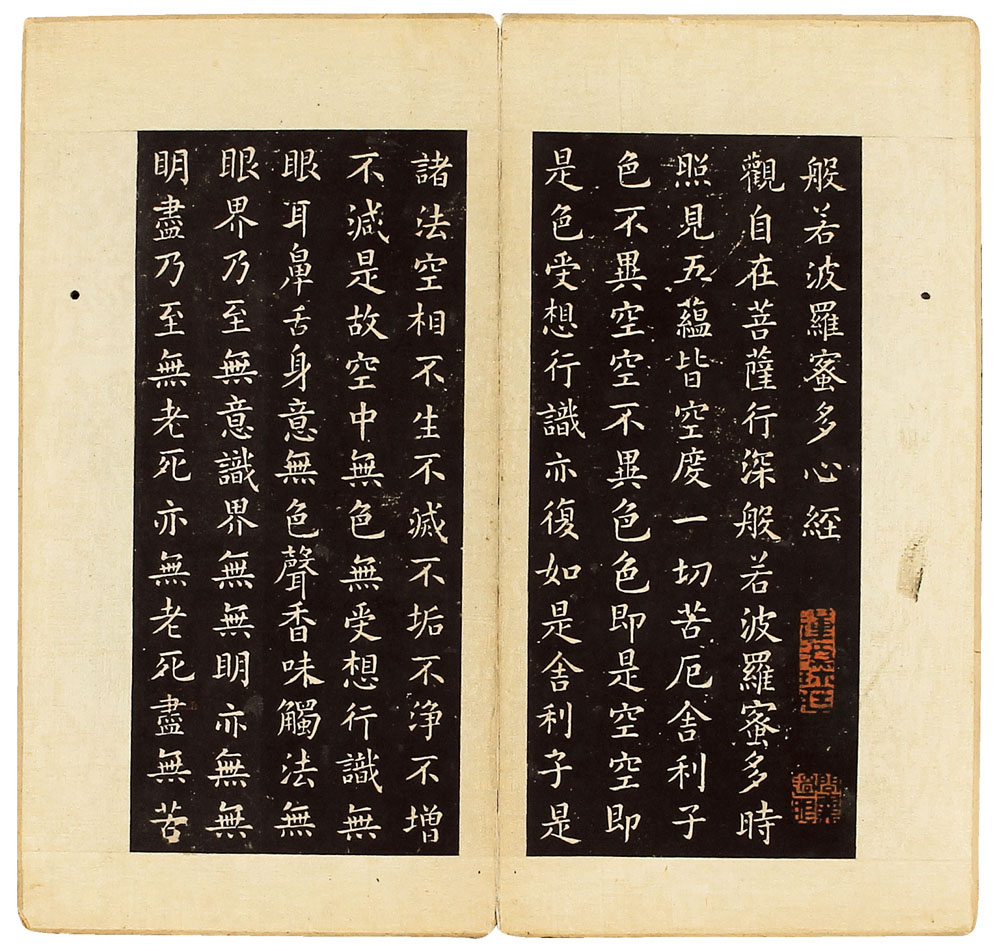 般若波羅蜜多心經
觀自在菩薩行深般若波羅蜜多時
照見五蘊皆空度一切苦厄舍利子
色不異空空不異色色即是空空即
是色受想行識亦復如是舍利子是
諸法空相不生不滅不垢不淨不增
不減是故空中無色無受想行識無
眼耳鼻舌身意無色聲香味觸法無
眼界乃至無意識界無無明亦無無
明盡乃至無老死亦無老死盡無苦